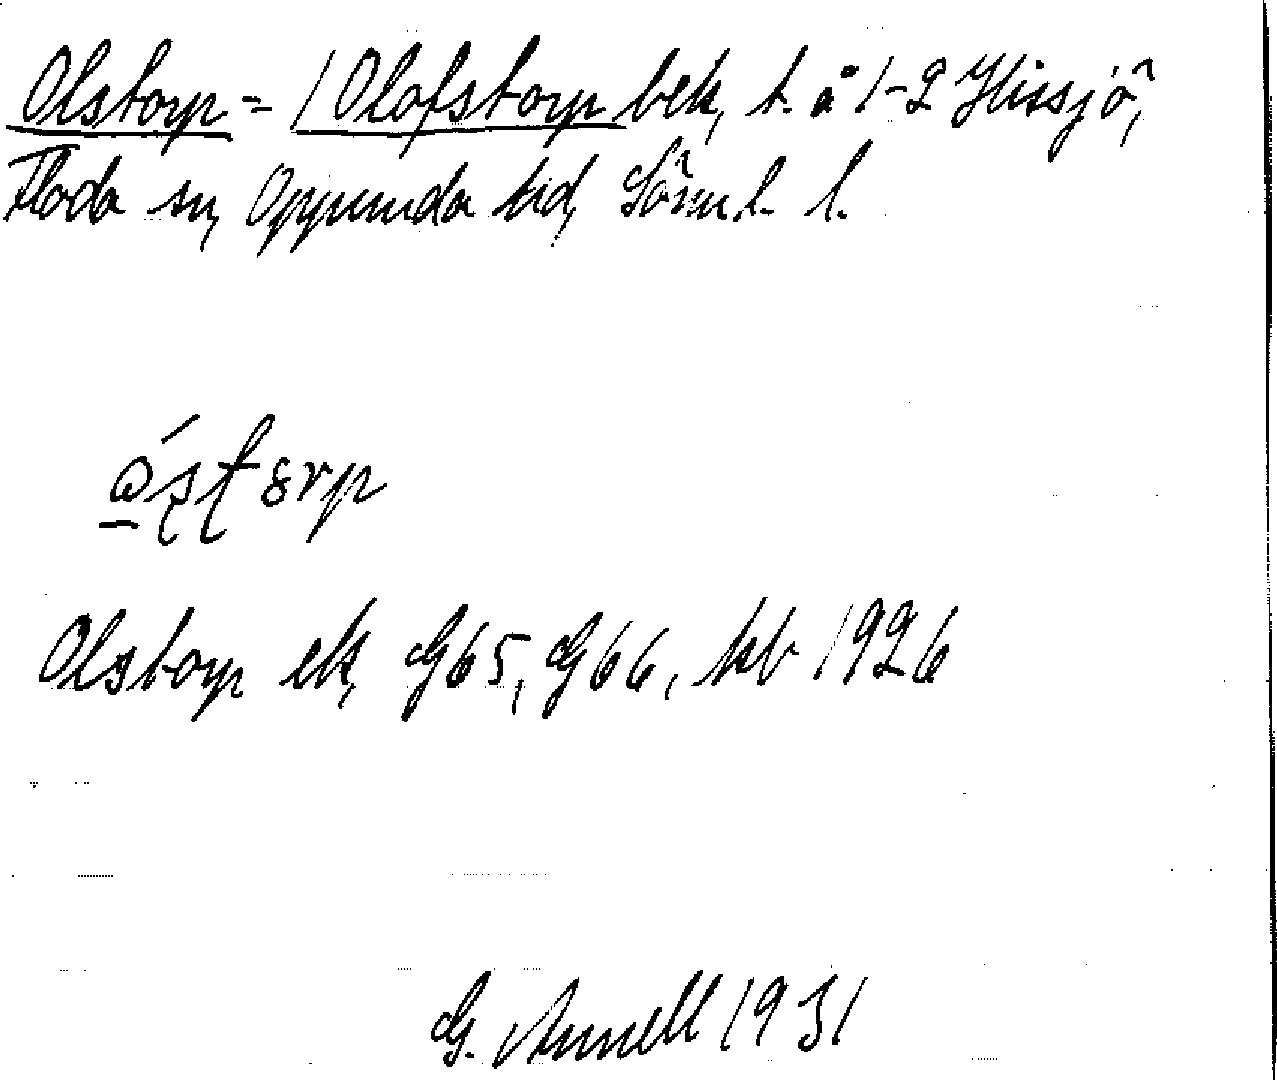 Olstorp = / Olofstorp bek, t. å 1-2 Hissjö,
Floda sn, Oppunda hd, Söml. l.
Olstorp ek, G65, G66, kb 1926
G. Annell 1931